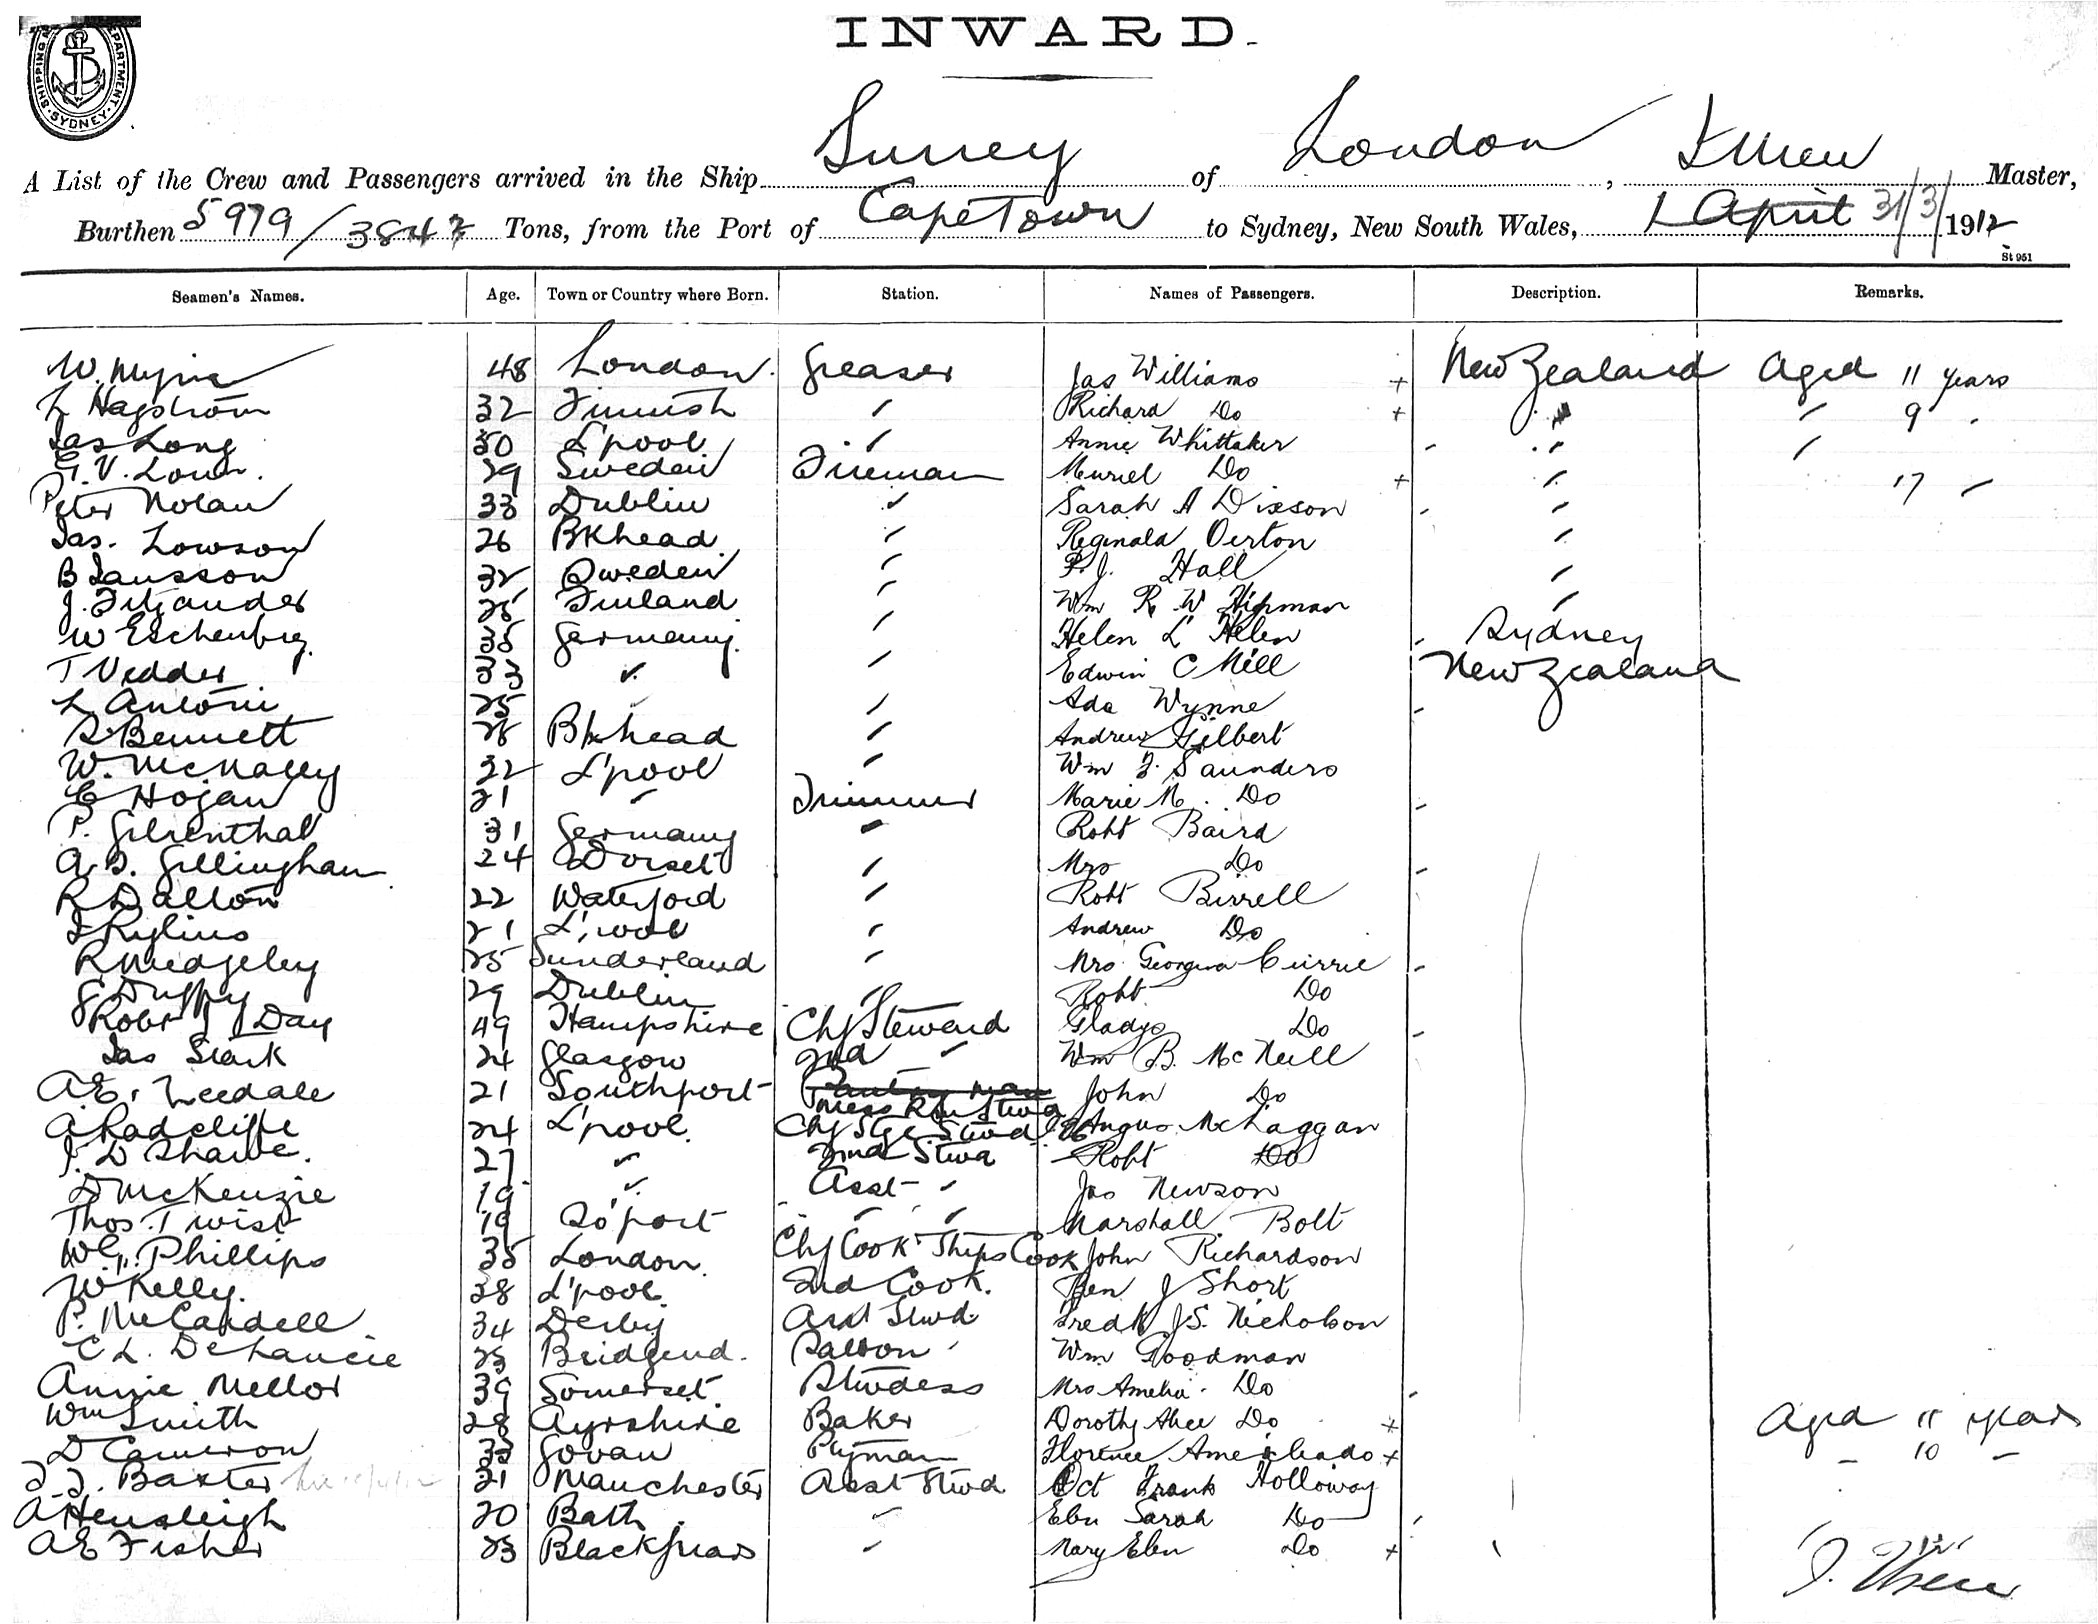 INWARD.
SHIPPING DEPARTMENT. SYDNEY.
A List of the Crew and Passengers arrived in the Ship Surrey of London, Master,
Burthen 5979/3847 Tons, from the Port of CapeTown to Sydney, New South Wales, 1 April 31/3/1912
St 951
Seamen's Names. Age. Town or Country where Born. Station. Names of Passengers. Description. Remarks.
W. 48 London. Greaser Jas Williams + New Zealand Aged 11 years
L Hagström 32 Finnish " Richard Do + " " 9 "
Jas Long 50 L'pool " Annie Whittaker - " "
G. V. 29 Sweden Fireman Muriel Do + " 17 "
Peter Nolan 33 Dublin " Sarah A Dixson - "
Jas. Lowson 26 Bkhead " Reginald Overton "
B Jansson 32 Sweden " P. J. Hall "
J. 25 Finland " Wm R W Hipman "
W Eschenburg. 35 Germany. " Helen L Helen - Sydney
T Vedder 33 " " Edwin C Mill New Zealand
L Antoni 25 " " Ada Wynne -
S Bennett 28 Bkhead " Andrew Gilbert
W. McNally 32 L'pool " Wm F. Saunders
C Hogan 21 " Trimmer Marie M. Do -
P. 31 Germany " Robt Baird
A. D. Gillingham 24 Dorset " Mrs Do -
R Dalton 22 Waterford " Robt Birrell
21 L'pool " Andrew Do
R Midgeley 25 Sunderland " Mrs Georgina Currie -
Duffy 29 Dublin " Robt Do
Robt J Day 49 Hampshire Chf Steward Gladys Do -
Jas Slack 24 Glasgow 2nd " Wm B. McNeill
A. E. Leedale 21 Southport Mess Rm Stwd John Do
A. Radcliffe 24 L'pool Chf Stge Stwd Angus McLaggan
27 " 2nd Stwd Robt Do
D McKenzie 19 " Asst " Jas Newson
Thos. Twist 19 So'port " " Marshall Bolt
Wm Phillips 35 London. Chf Cook Ships Cook John Richardson
W Kelly. 28 L'pool 2nd Cook. Ben J Short
P. McCardell 34 Derby Asst Stwd Fredk J S. Nicholson
C L. DeLancie 23 Bridgend. Saloon " Wm Goodman
Annie Mellor 39 Somerset. Stwdess Mrs Amelia Do -
Wm Smith 28 Ayrshire Baker Dorothy Alice Do + Aged 11 years
D Cameron 33 Govan Ptyman Florence Do + " 10 "
Baxter 21 Manchester Asst Stwd Oct Frank Holloway
A Hensleigh 20 Bath " Ebu Sarah Do -
A E Fisher 23 Blackfriars " Mary Ebu Do +